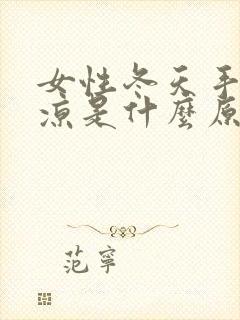 女性冬天手
涼是什麼原
范寧